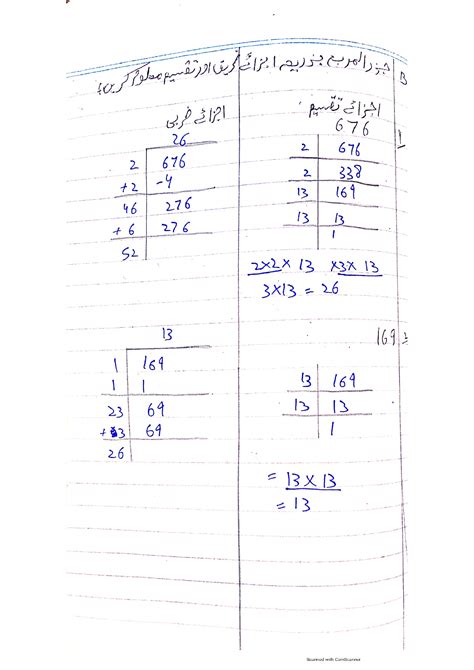 B جذرالمربع بذریعہ اجزائے ضربی اور تقسیم معلوم کریں؛
1 اجزائے تقسیم
676
2 | 676
2 | 338
13 | 169
13 | 13
1
2×2× 13 ×3× 13
3×13 = 26
اجزائے ضربی
26
2 | 676
+2 | -4
46 | 276
+ 6 | 276
52
169
13 | 169
13 | 13
1
= 13 × 13
= 13
13
1 | 169
1 | 1
23 | 69
+ 3 | 69
26
Scanned with CamScanner